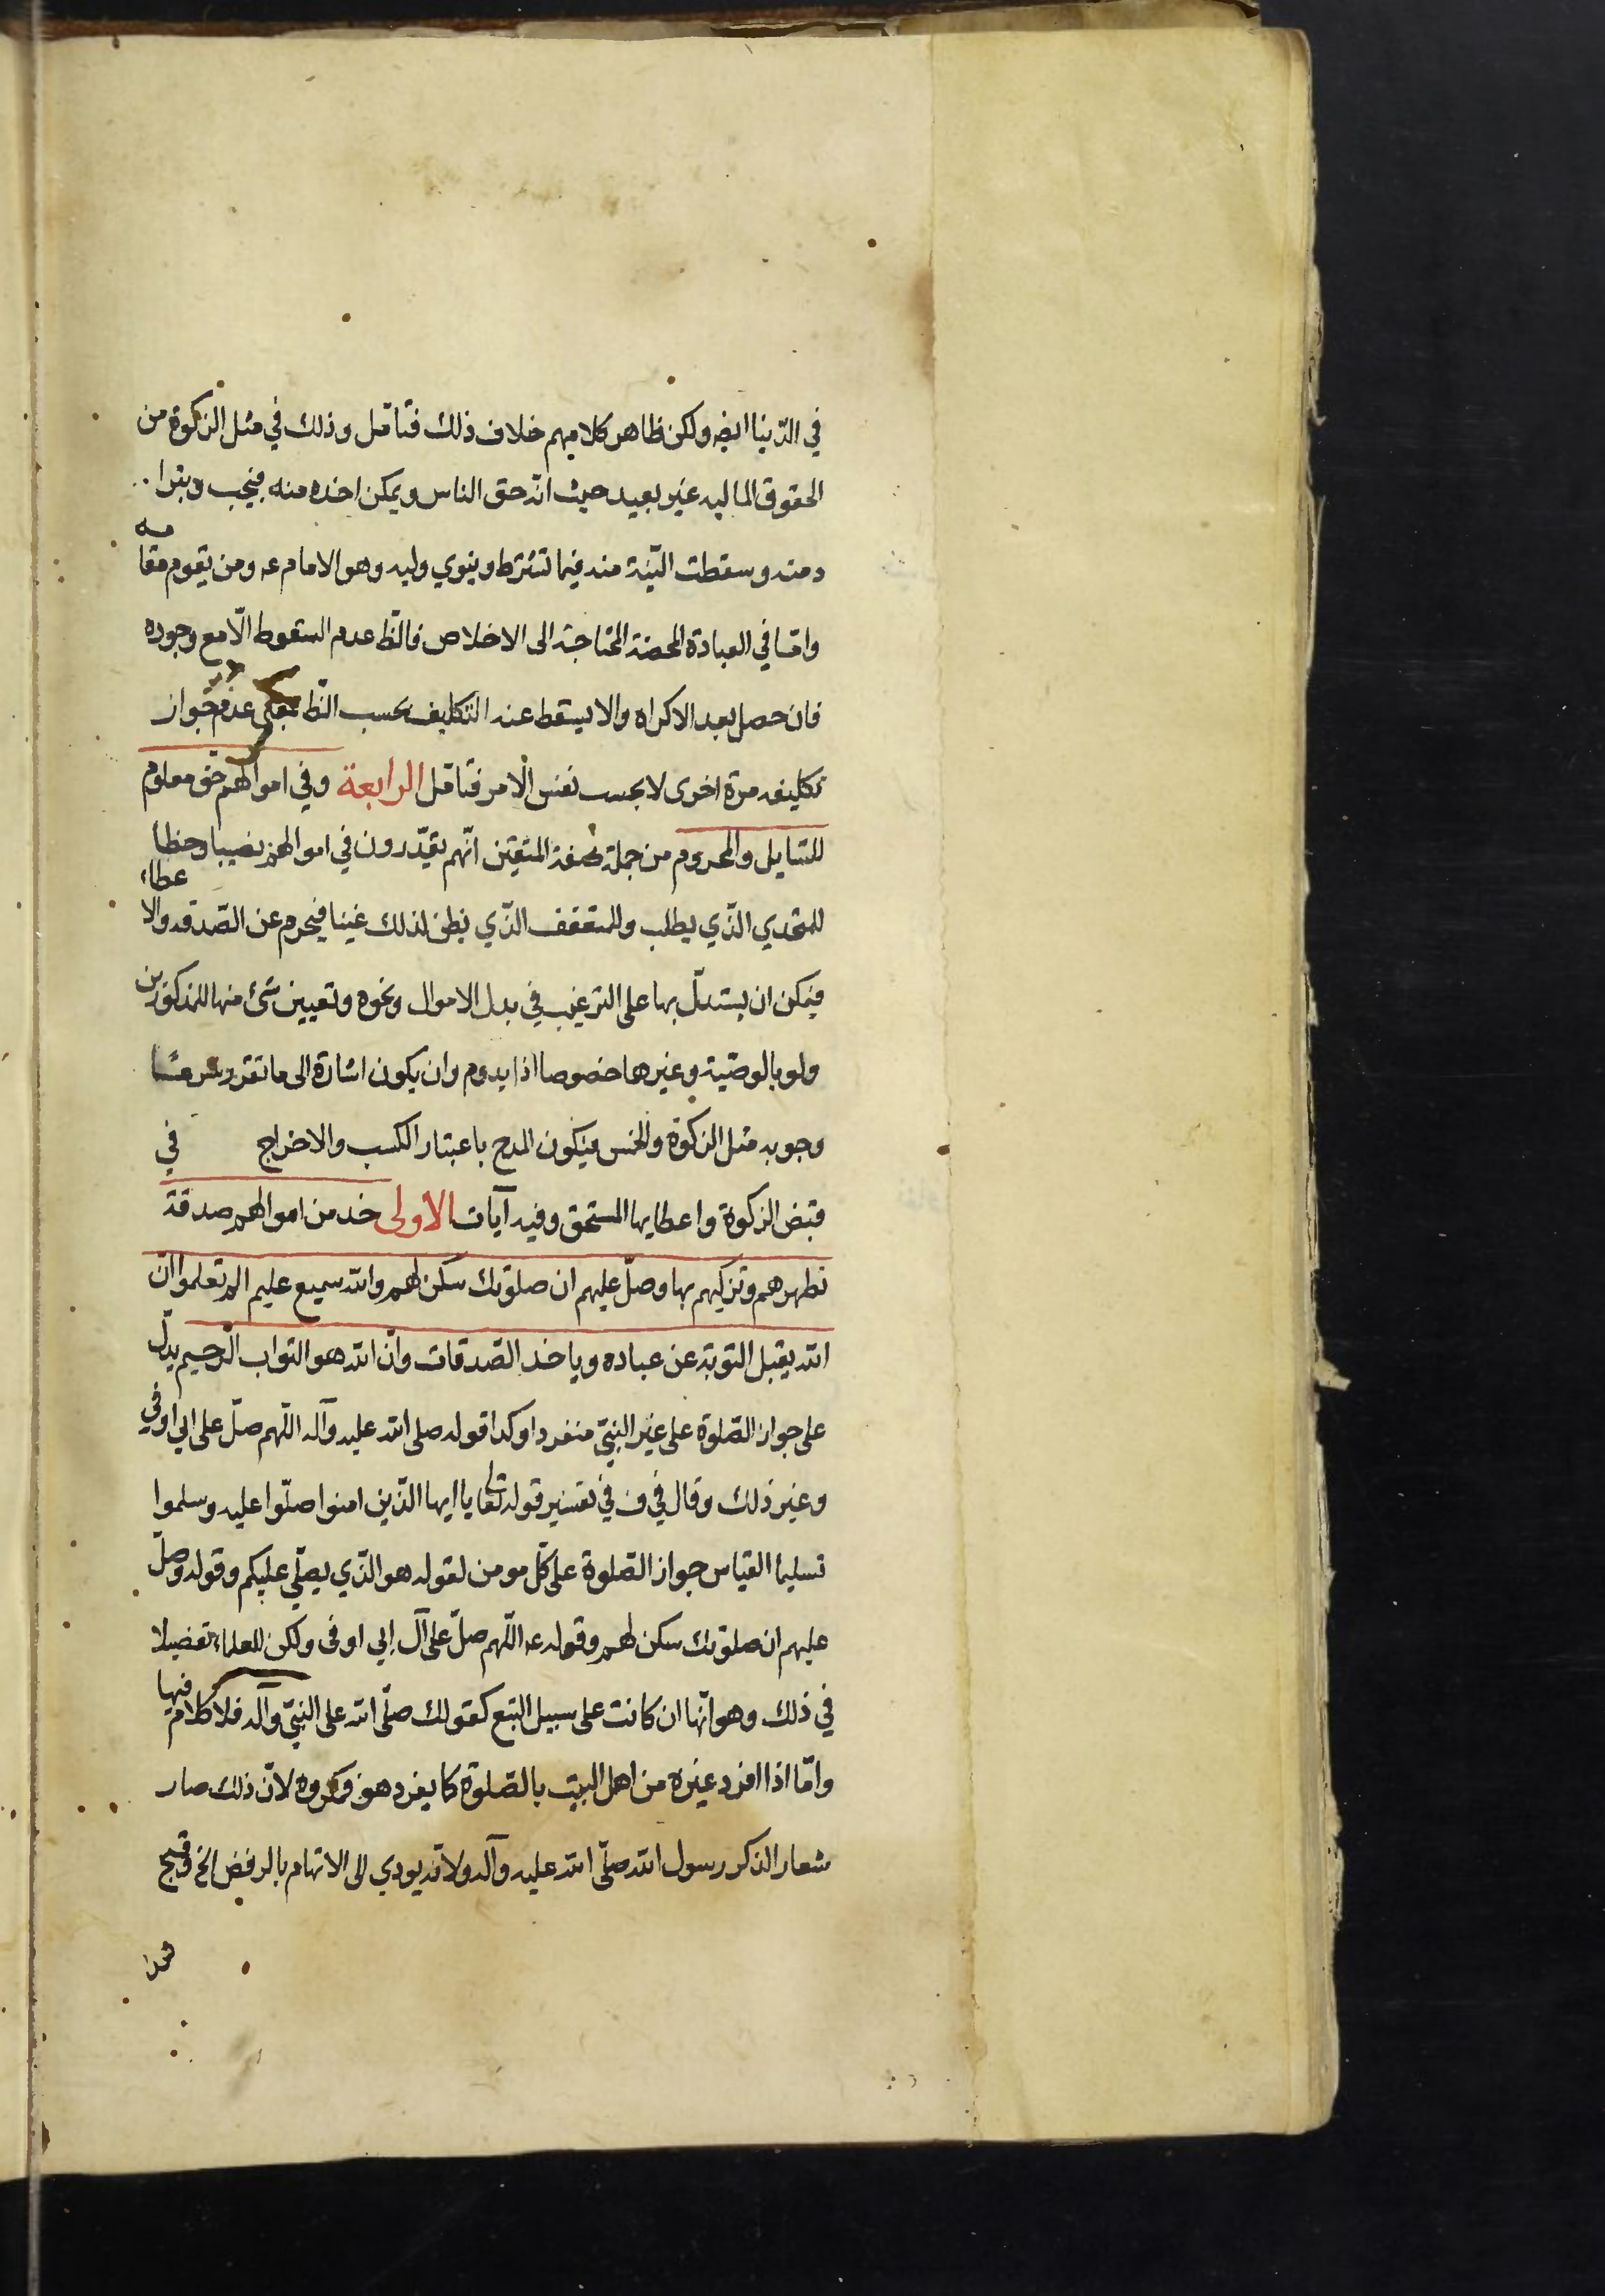 في الدّنيا ايضه ولكن ظاهر كلامهم خلاف ذلك فتأمّل وذلك في مثل الزكوة من
الحقوق الماليه غير بعيد حيث انّه حق الناس ويمكن اخذه منه فيجب ويبرا
ذمته وسقطت النيّة منه فيما تشترط وينوي وليه وهو الامام عه ومن يقوم مقامه
وامّا في العبادة المحضة المحتاجة الى الاخلاص فالظّ عدم السقوط الّا مع وجوده
فان حصل بعد الاكراه والا يسقط عنه التكليف بحسب الظّ بمعنى عدم جواز
تكليفه مرة اخرى لا بحسب نفس الامر فتأمّل الرابعة وفي اموالهم حق معلوم
للسّايل والمحروم من جملة صفة المتقين انّهم يقدّرون في اموالهم نصيبا وحظا
للمتجدي الذّي يطلب وللمتعفف الذّي يظن لذلك غنيا فيحرم عن الصّدقه والاعطاء
فيمكن ان يستدلّ بها على الترغيب في بذل الاموال ونحوه وتعيين شئ منها للمذكورين
ولو بالوصّية وغيرها خصوصا اذا يدوم وان يكون اشارة الى ما تقرر شرعا
وجوبه مثل الزكوة والخمس فيكون المدح باعتبار الكسب والاخراج في
قبض الزكوة واعطايها المستحق وفيه آيات الاولى خذ من اموالهم صدقة
تطهرهم وتزكيهم بها وصلّ عليهم ان صلوتك سكن لهم والله سميع عليم الم تعلموا انّ
الله يقبل التوبة عن عباده وياخذ الصّدقات وانّ الله هو التواب الرّحيم يدلّ
على جواز الصّلوة على غير النبيّ منفردا وكذا قوله صلى الله عليه وآله اللّهم صلّ على ابي اوفي
وغير ذلك وقال في ف في تفسير قوله تعالى يا ايها الذّين امنوا صلّوا عليه وسلموا
تسليما القياس جواز الصّلوة على كلّ مومن لقوله هو الذّي يصلّي عليكم وقوله وصلّ
عليهم ان صلوتك سكن لهم وقوله عه اللّهم صلّ على آل ابي اوفى ولكن للعلماء تفضيلا
في ذلك وهو انّها ان كانت على سبيل التبع كقولك صلّى الله على النبيّ وآله فلا كلام فيها
وامّا اذا افرد غيره من اهل البيت بالصّلوة كما يفرد هو فمكروه لانّ ذلك صار
شعار الذكر رسول الله صلّى الله عليه وآله ولانّه يودي الى الاتهام بالرفض الخ وقبح